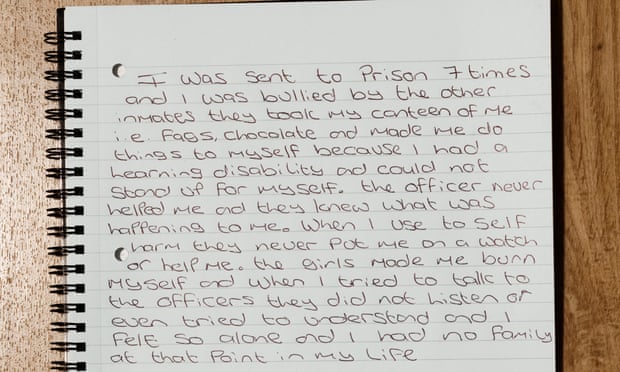 I was sent to Prison 7 times
and I was bullied by the other
inmates they took my canteen of me
i.e. Fags, chocolate ad made me do
things to myself because I had a
learning disability ad could not
stand up for myself. the officer never
helped me ad they knew what was
happening to me. When I use to self
harm they never put me on a watch
or help me. the girls made me burn
myself ad when I tried to talk to
the officers they did not listen or
even tried to understand and I
felt so alone and I had no family
at that point in my life